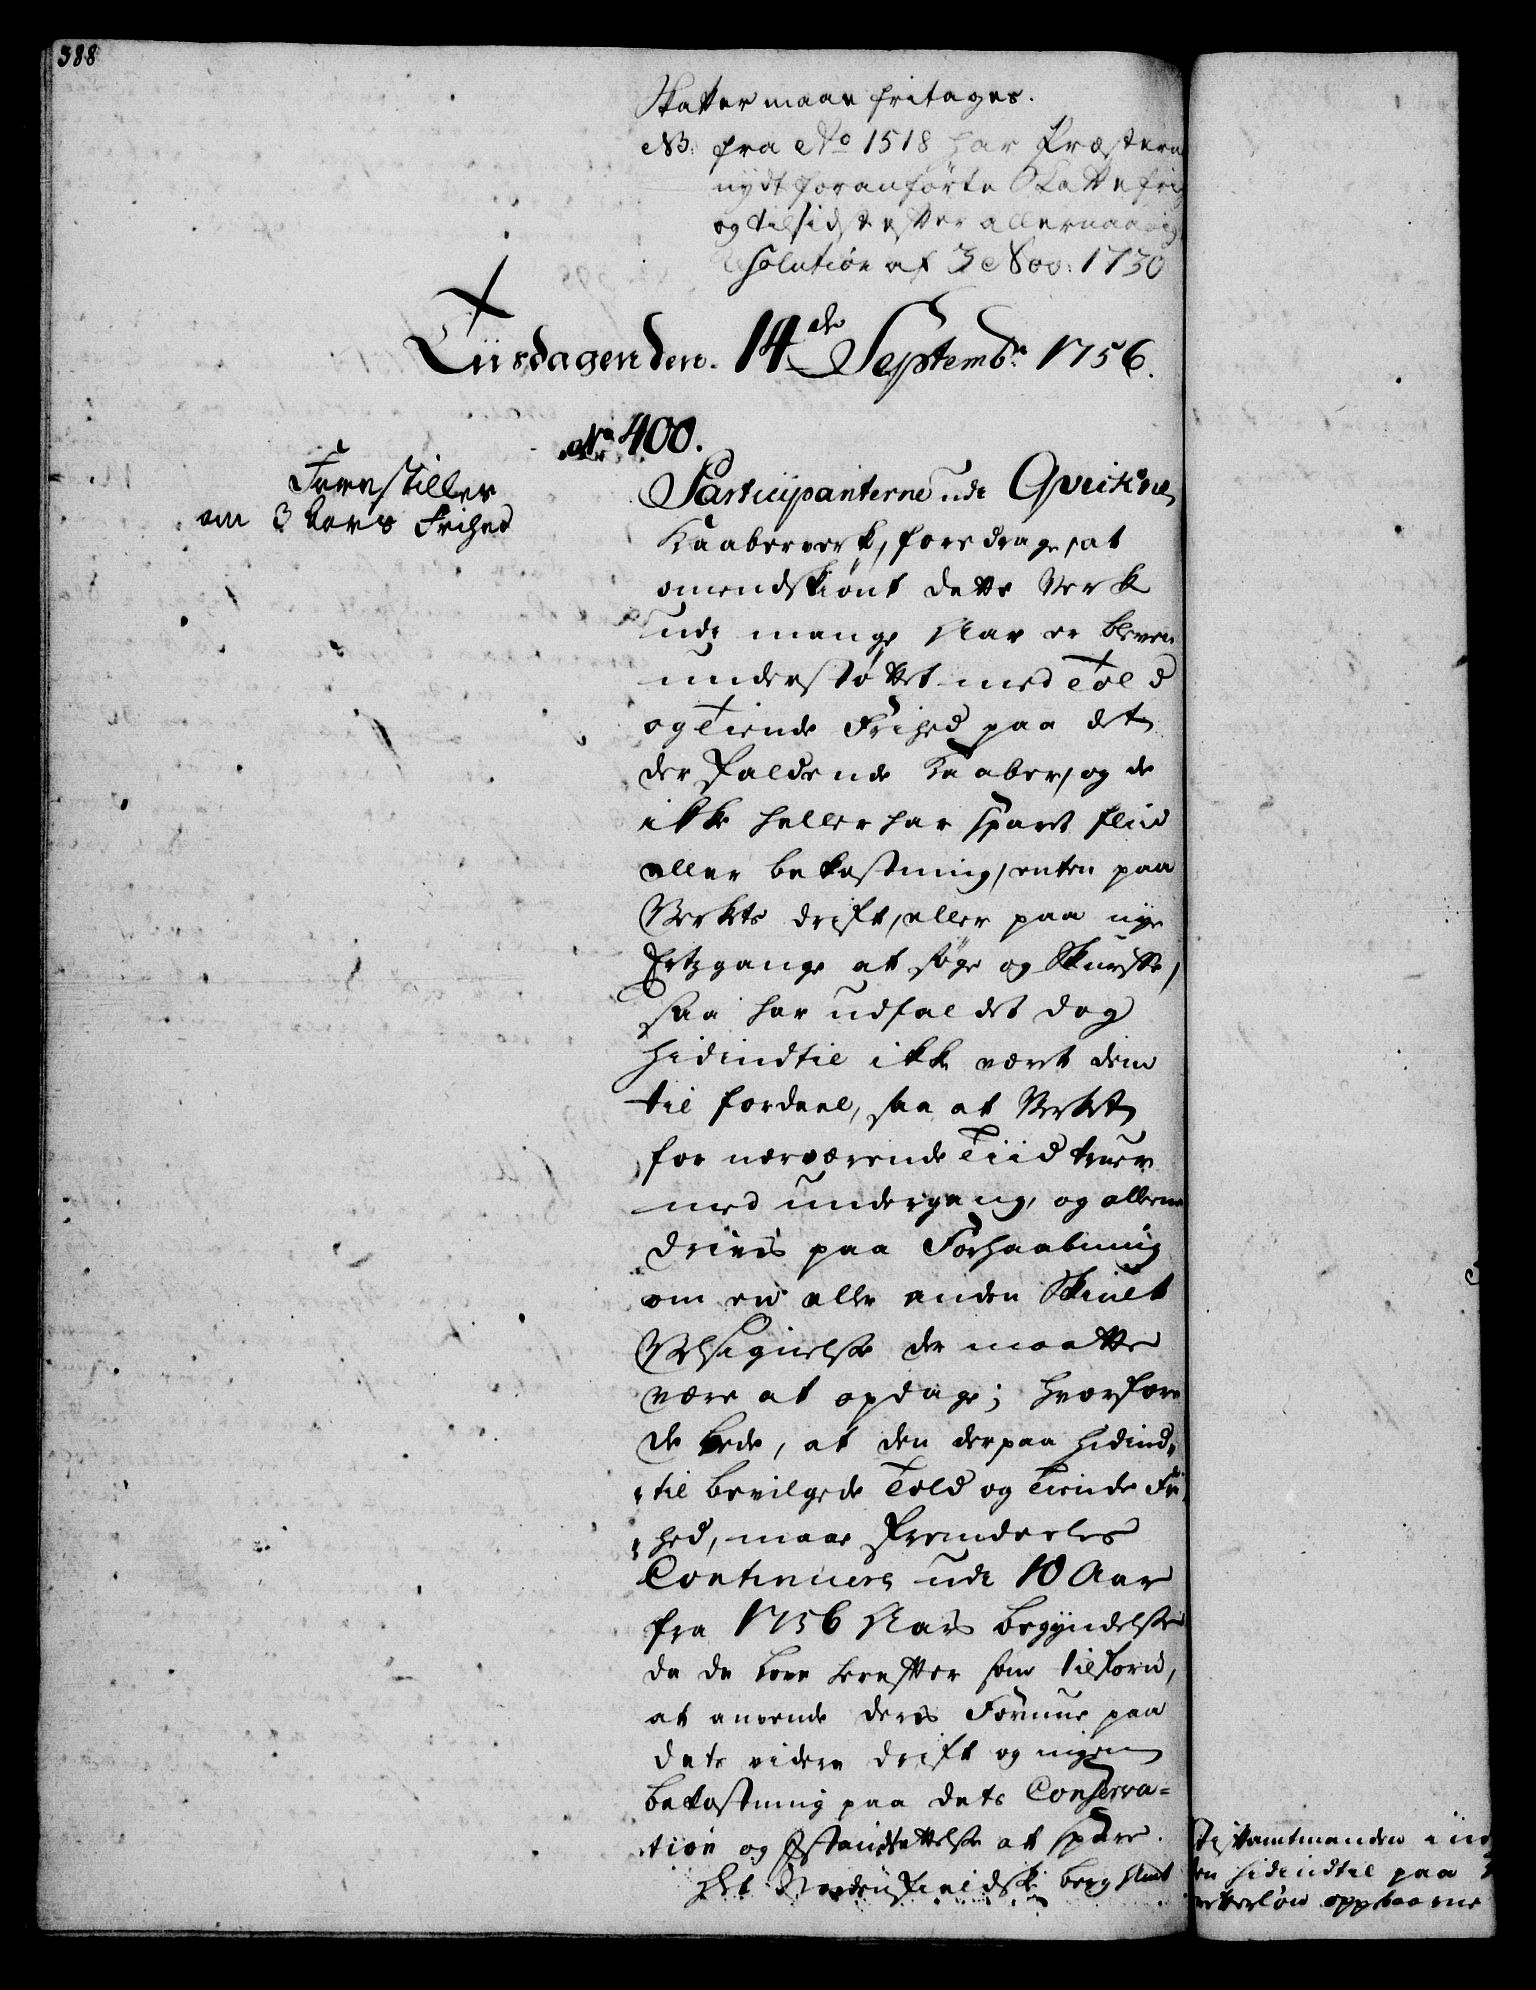 388
Skatter maae fritages.
NB: fra No 1518 har Præstern
nydt foranførte Skattefri
og tilsidst efter allernaadig
solution af 3 Nov: 1730
Tiisdagen den 14de Septembr. 1756.
No 400.
Forestilles
om 3 Aars Frihed
Participanterne udi Qvikne
Kaaberverk, foredrage, at
omendskiønt dette Verk
udi mange Aar er bleven
understøttet med Told
og Tiende Frihed paa det
der faldende Kaaber, og de
ikke heller har sparet fliid
eller bekostning, enten paa
Verkets drift, eller paa nye
Ertzgange at søge og Skurffe,
saa har udfaldet dog
hidindtil ikke været dem
til fordeel, saa at Verket
for nærværende Tiid truer
med undergang, og allene
drives paa Forhaabning
om en eller anden Skiult
Velsignelse der maatte
være at opdage; hvorfore
de bede, at den derpaa hidind-
til bevilgede Told og Tiende Fri
hed, maae fremdeeles
Continuere udi 10 Aar
fra 1756 Aars begyndelse
da de love herefter som tilforn,
at anvende deres Formue paa
dets videre drift og ingen
bekostning paa dets Conserva-
tion og Istandsættelse at spare.
Det Nordenfieldske Berg Amt
Stiftamtmanden i
en hidindtil paa
oppebaarne